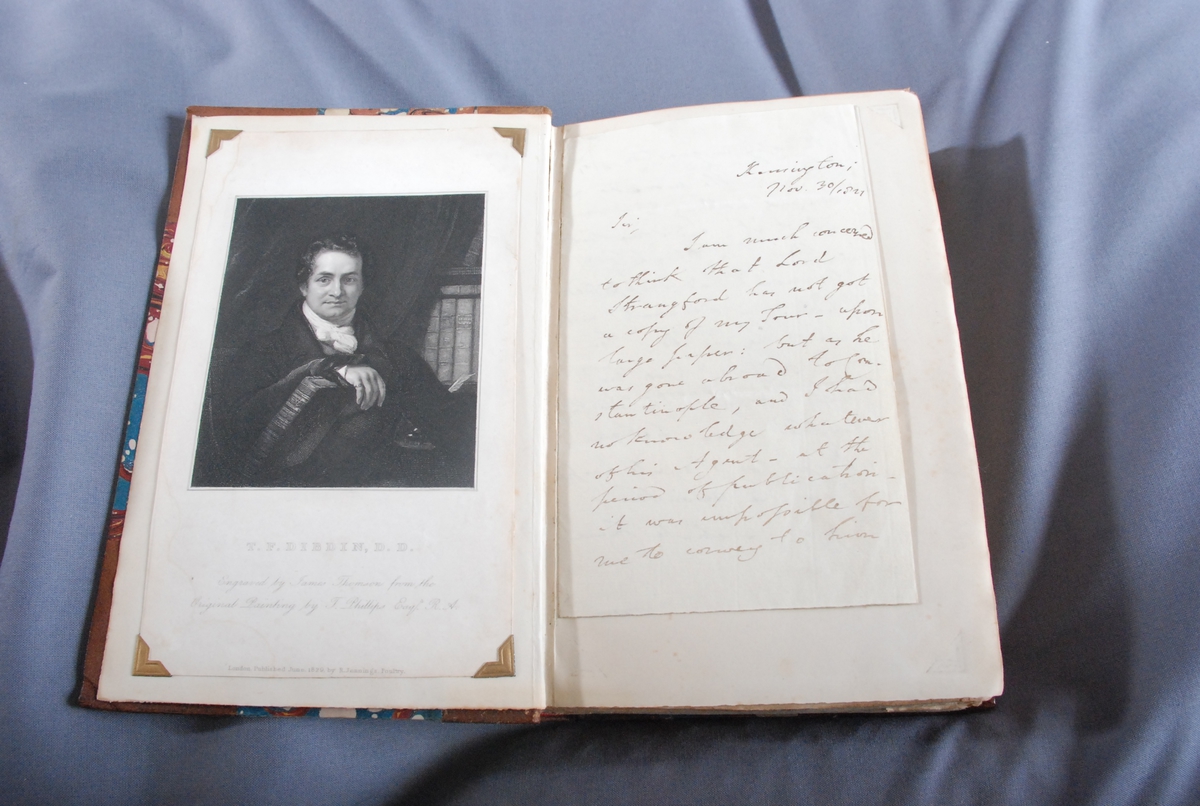 T. F. DIBDIN, D. D.
Engraved by James Thomson from the
Original Painting by T. Phillips Esqr. R. A.
London, Published June, by
Kensington;
Nov. 30/1821
Sir,
I am much concerned
to think that Lord
Strangford has not got
a copy of my Tour - upon
large paper: but as he
was gone abroad to Con-
stantinople, and I had
no knowledge whatever
of his Agent - at the
period of publication -
it was impossible for
me to convey to him